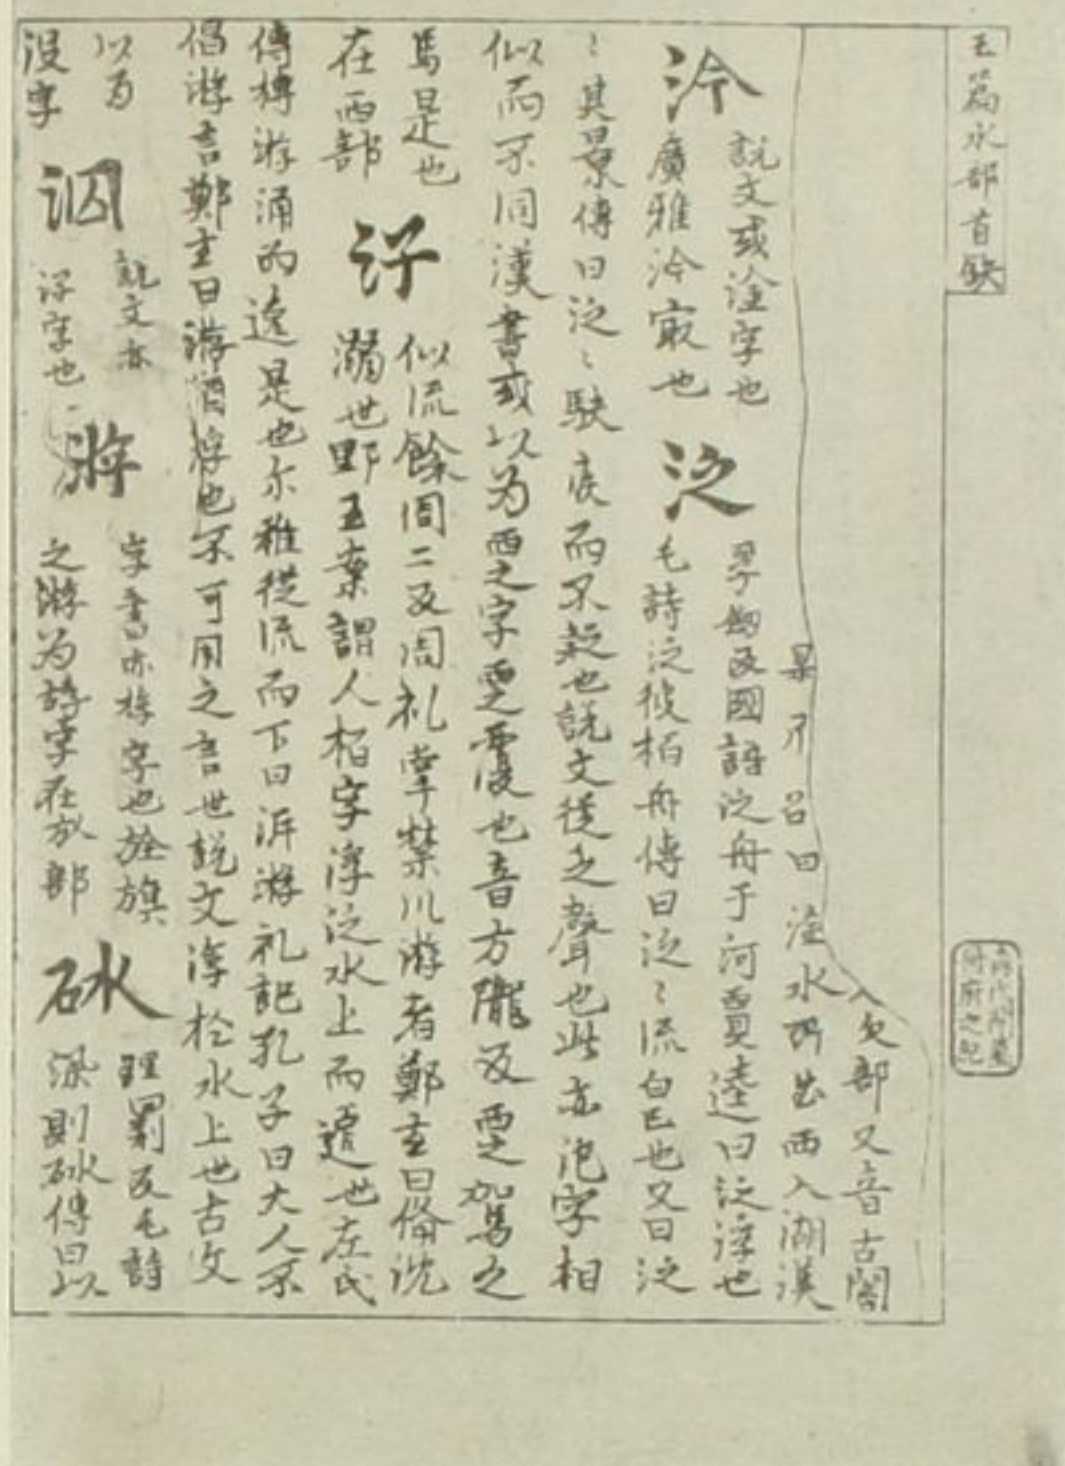 玉篇水部首缺
欠部又音古闇
呂曰淦水所出西入湖漢
汵
說文或淦字也
廣雅汵寂也
泛
孚劒反國語泛舟于河賈逵曰泛浮也
毛詩泛彼栢舟傳曰泛〻流皃也又曰泛
〻其景傳曰泛〻駃疾而不礙也說文從乏聲也此亦汜字相
似而不同漢書或以为覂之字覂覆也音方隴反覂駕之
馬是也
在西部
汓
似流餘周二反周礼掌禁川游者鄭玄曰俻沈
溺也野王案謂人栢字浮泛水上而逰也左氏
傳槫游涌而逸是也尒雅從流而下曰泝游礼記孔子曰大人不
倡游言鄭玄曰游酒浮也不可用之言也說文浮於水上也古文
以为
沒字
泅
說文亦
汓字也
㳺
字書亦桴字也旌旗
之游为斿字在㫃部
砅
理罽反毛詩
深則砅傳曰以